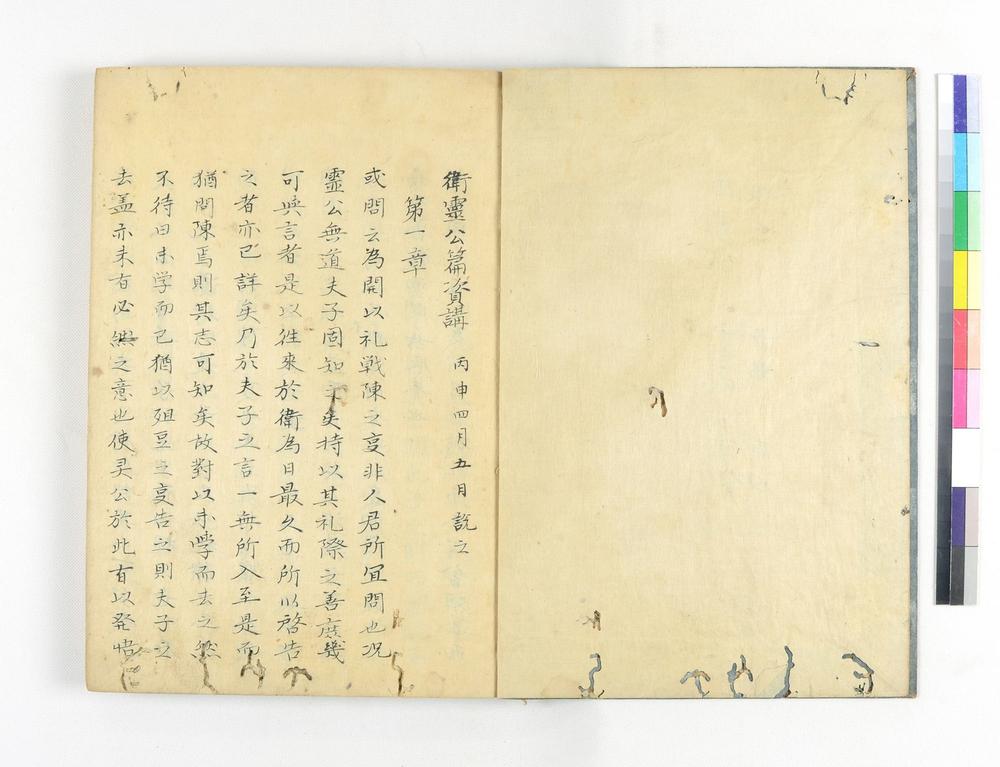 衛靈公篇資講 丙申四月五日說之
第一章
或問云為開以礼戦陳之㕝非人君所宜問也况
靈公無道夫子固知之矣特以其礼際之善庶幾
可與言者是以徃來於衛為日最久而所以啓告
之者亦已詳矣乃於夫子之言一無所入至是而
猶問陳焉則其志可知矣故對以未學而去之然
不待曰未学而已猶以爼豆之㕝告之則夫子之
去盖亦未有必然之意也使灵公於此有以発悟